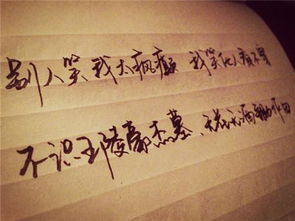 别人笑我太疯癫 我笑他人看不穿
不识五陵豪杰墓 无花无酒锄作田